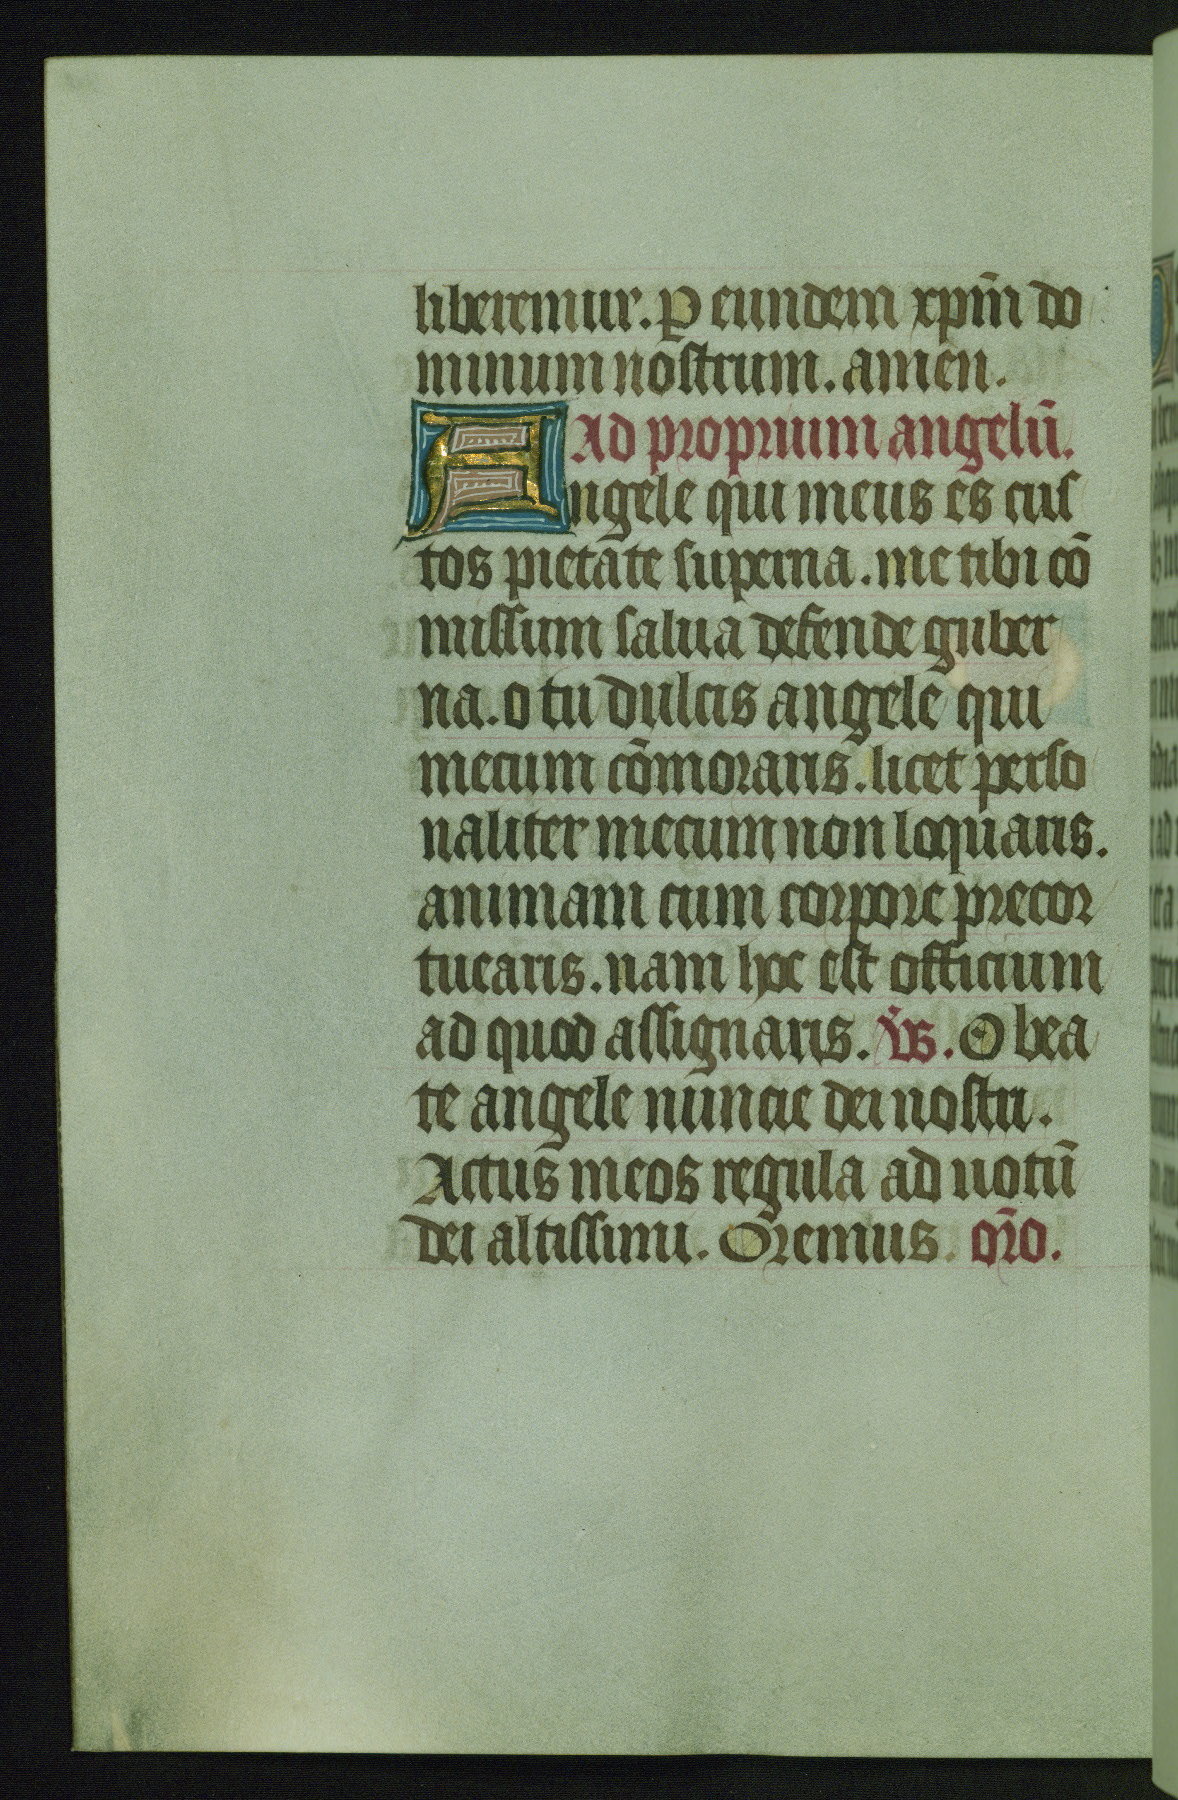 liberemur. P eundem xpm̄ do
minum nostrum. amen.
Ad proprium angelū.
Angele qui meus es cus
tos pietate superna. me tibi cō
missum salua defende guber
na. o tu dulcis angele qui
mecum cōmoraris. licet perso
naliter mecum non loquaris.
animam cum corpore precor
tuearis. nam hoc est officium
ad quod assignaris. V̊s. O bea
te angele nuncie dei nostri.
Actus meos regula ad uotū
dei altissimi. Oremus. or̄o.